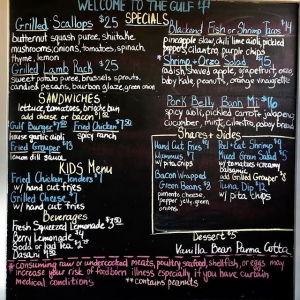 WELCOME TO THE GULF
SPECIALS
Grilled Scallops $25
butternut squash puree, shiitake
mushrooms, onions, tomatoes, spinach,
thyme, lemon
Grilled Lamb Rack $25
sweet potato puree, brussels sprouts,
candied pecans, bourbon glaze, green onion
SANDWICHES
lettuce, tomatoes, brioche bun
add cheese or bacon
Gulf Burger
house garlic aioli
Fried Chicken
spicy ranch
Fried Grouper $13
lemon dill sauce
KIDS Menu
Fried Chicken Tenders
w/ hand cut fries
Grilled Cheese
w/ hand cut fries
Beverages
Fresh Squeezed Lemonade
Berry Lemonade $4
Soda or Iced Tea
Dasani
Blackened Fish or Shrimp Tacos $14
pineapple slaw, chili lime aioli, pickled
peppers, cilantro, purple chips
*Shrimp + Orzo Salad $15
radish, shaved apple, grapefruit,
baby kale, peanuts, orange vinaigrette
Pork Belly Banh Mi $16
spicy aioli, pickled carrot + jalapeno,
cucumber, mint, cilantro, baby bread
Shares + Sides
Hand Cut Fries $4
Hummus
w/ pita chips
Bacon Wrapped
Green Beans $8
pimento cheese,
pepper jelly, green
onions
Peel + Eat Shrimp
Mixed Green Salad $5
w/ tomatoes, creamy
balsamic
add Grilled Grouper $8
Tuna Dip $12
w/ pita chips
Dessert $5
Vanilla Bean Panna Cotta
*consuming raw or undercooked meats, poultry, seafood, shellfish, or eggs may
increase your risk of foodborn illness especially if you have certain
medical conditions
**contains peanuts